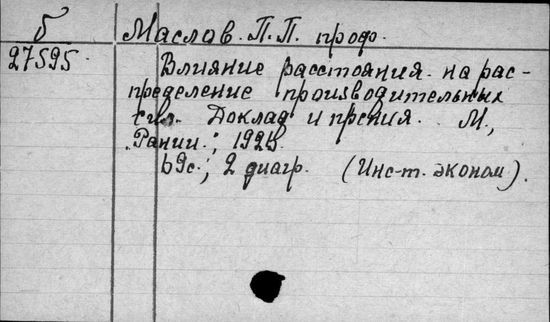 б
27595.
Маслов. П.П. проф.
Влияние расстояния на рас-
пределение производительных
сил. Доклад и прения. М.,
Рании.; 1928
69с.; 2 диагр. (Инс-т. эконом).